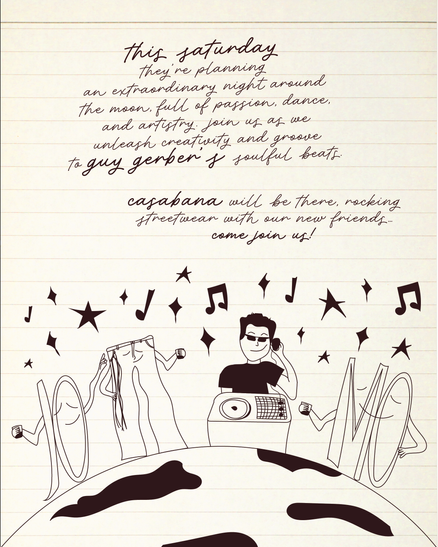 this saturday
they're planning
an extraordinary night around
the moon, full of passion, dance,
and artistry. join us as we
unleash creativity and groove
to guy gerber's soulful beats.
casabana will be there, rocking
streetwear with our new friends...
come join us!